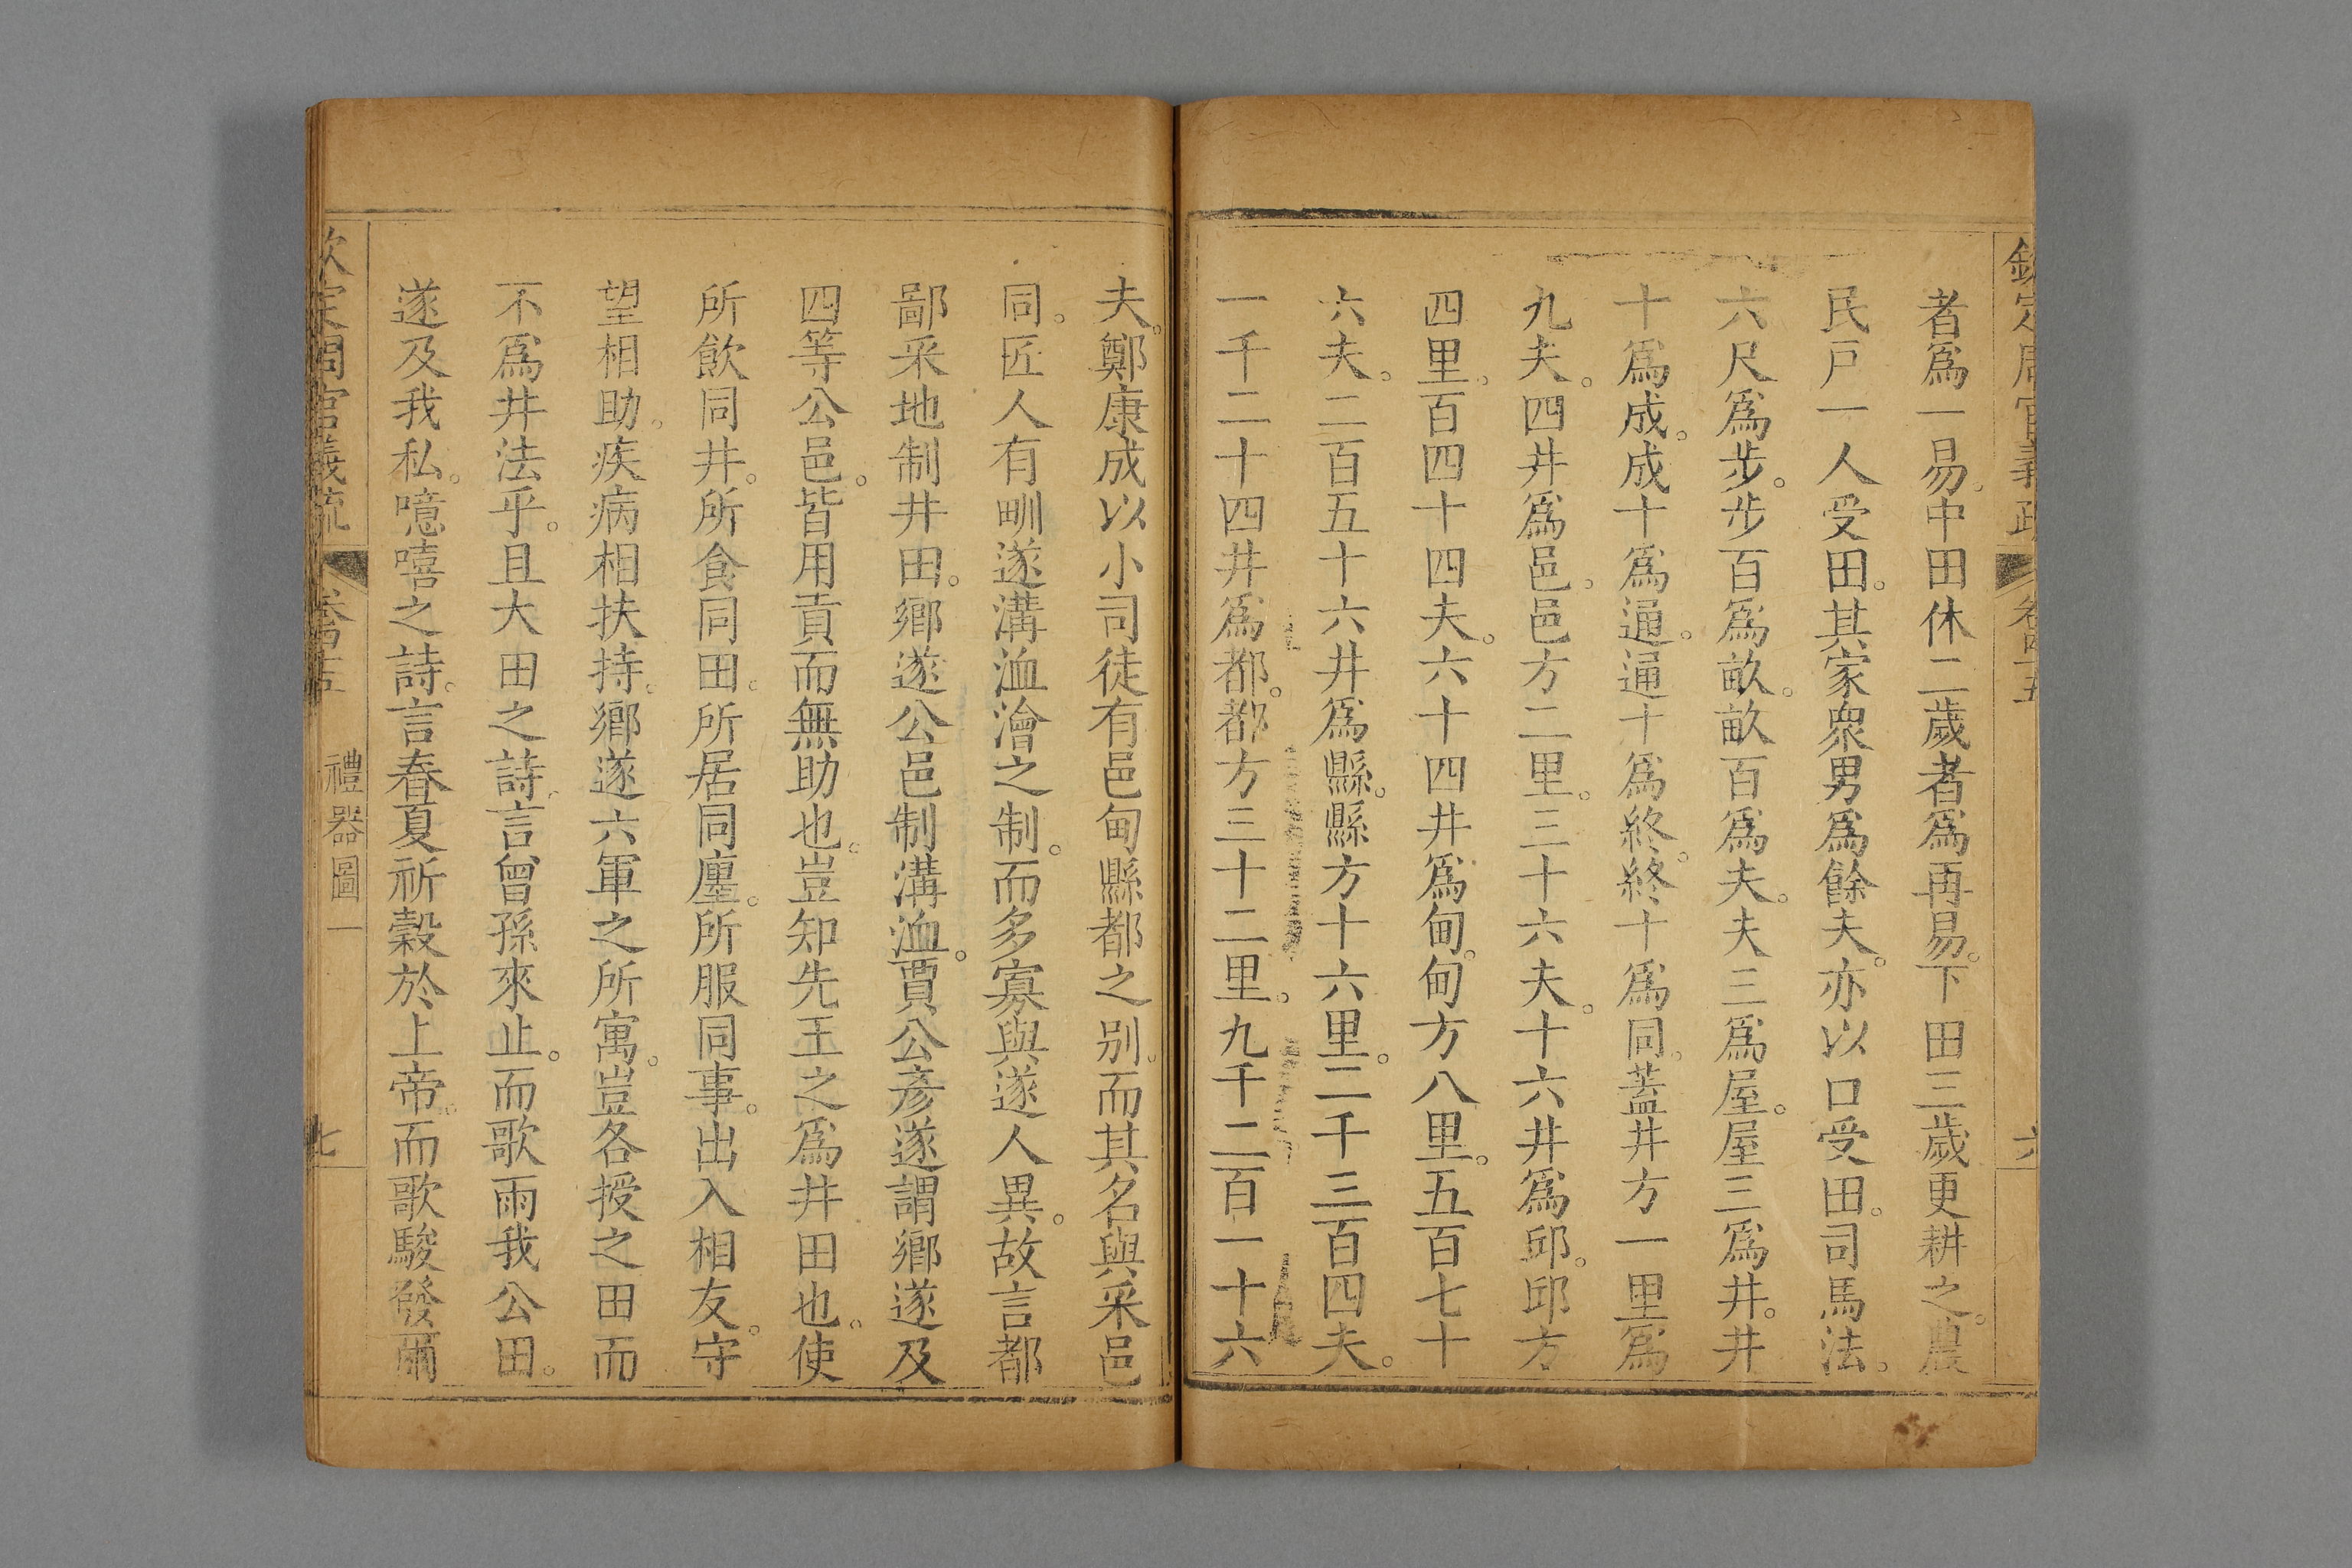 欽定周官義疏 卷四十五 六
者爲一易。中田休二歲者爲再易。下田三歲更耕之。農
民戸一人受田。其家衆男爲餘夫。亦以口受田。司馬法。
六尺爲步。步百爲畝。畝百爲夫。夫三爲屋。屋三爲井。井
十爲成。成十爲通。通十爲終。終十爲同。蓋井方一里爲
九夫。四井爲邑。邑方二里。三十六夫。十六井爲邱。邱方
四里。百四十四夫。六十四井爲甸。甸方八里。五百七十
六夫。二百五十六井爲縣。縣方十六里。二千三百四夫。
一千二十四井爲都。都方三十二里。九千二百一十六
夫。鄭康成以小司徒有邑甸縣都之别。而其名與采邑
同。匠人有甽遂溝洫澮之制。而多寡與遂人異。故言都
鄙采地制井田。鄉遂公邑制溝洫。賈公彥遂謂鄉遂及
四等公邑。皆用貢而無助也。豈知先王之爲井田也。使
所飲同井。所食同田。所居同廛。所服同事。出入相友。守
望相助。疾病相扶持。鄉遂六軍之所寓。豈各授之田而
不爲井法乎。且大田之詩。言曾孫來止。而歌雨我公田。
遂及我私。噫嘻之詩。言春夏祈穀於上帝。而歌駿發爾
欽定周官義疏 禮器圖一 七